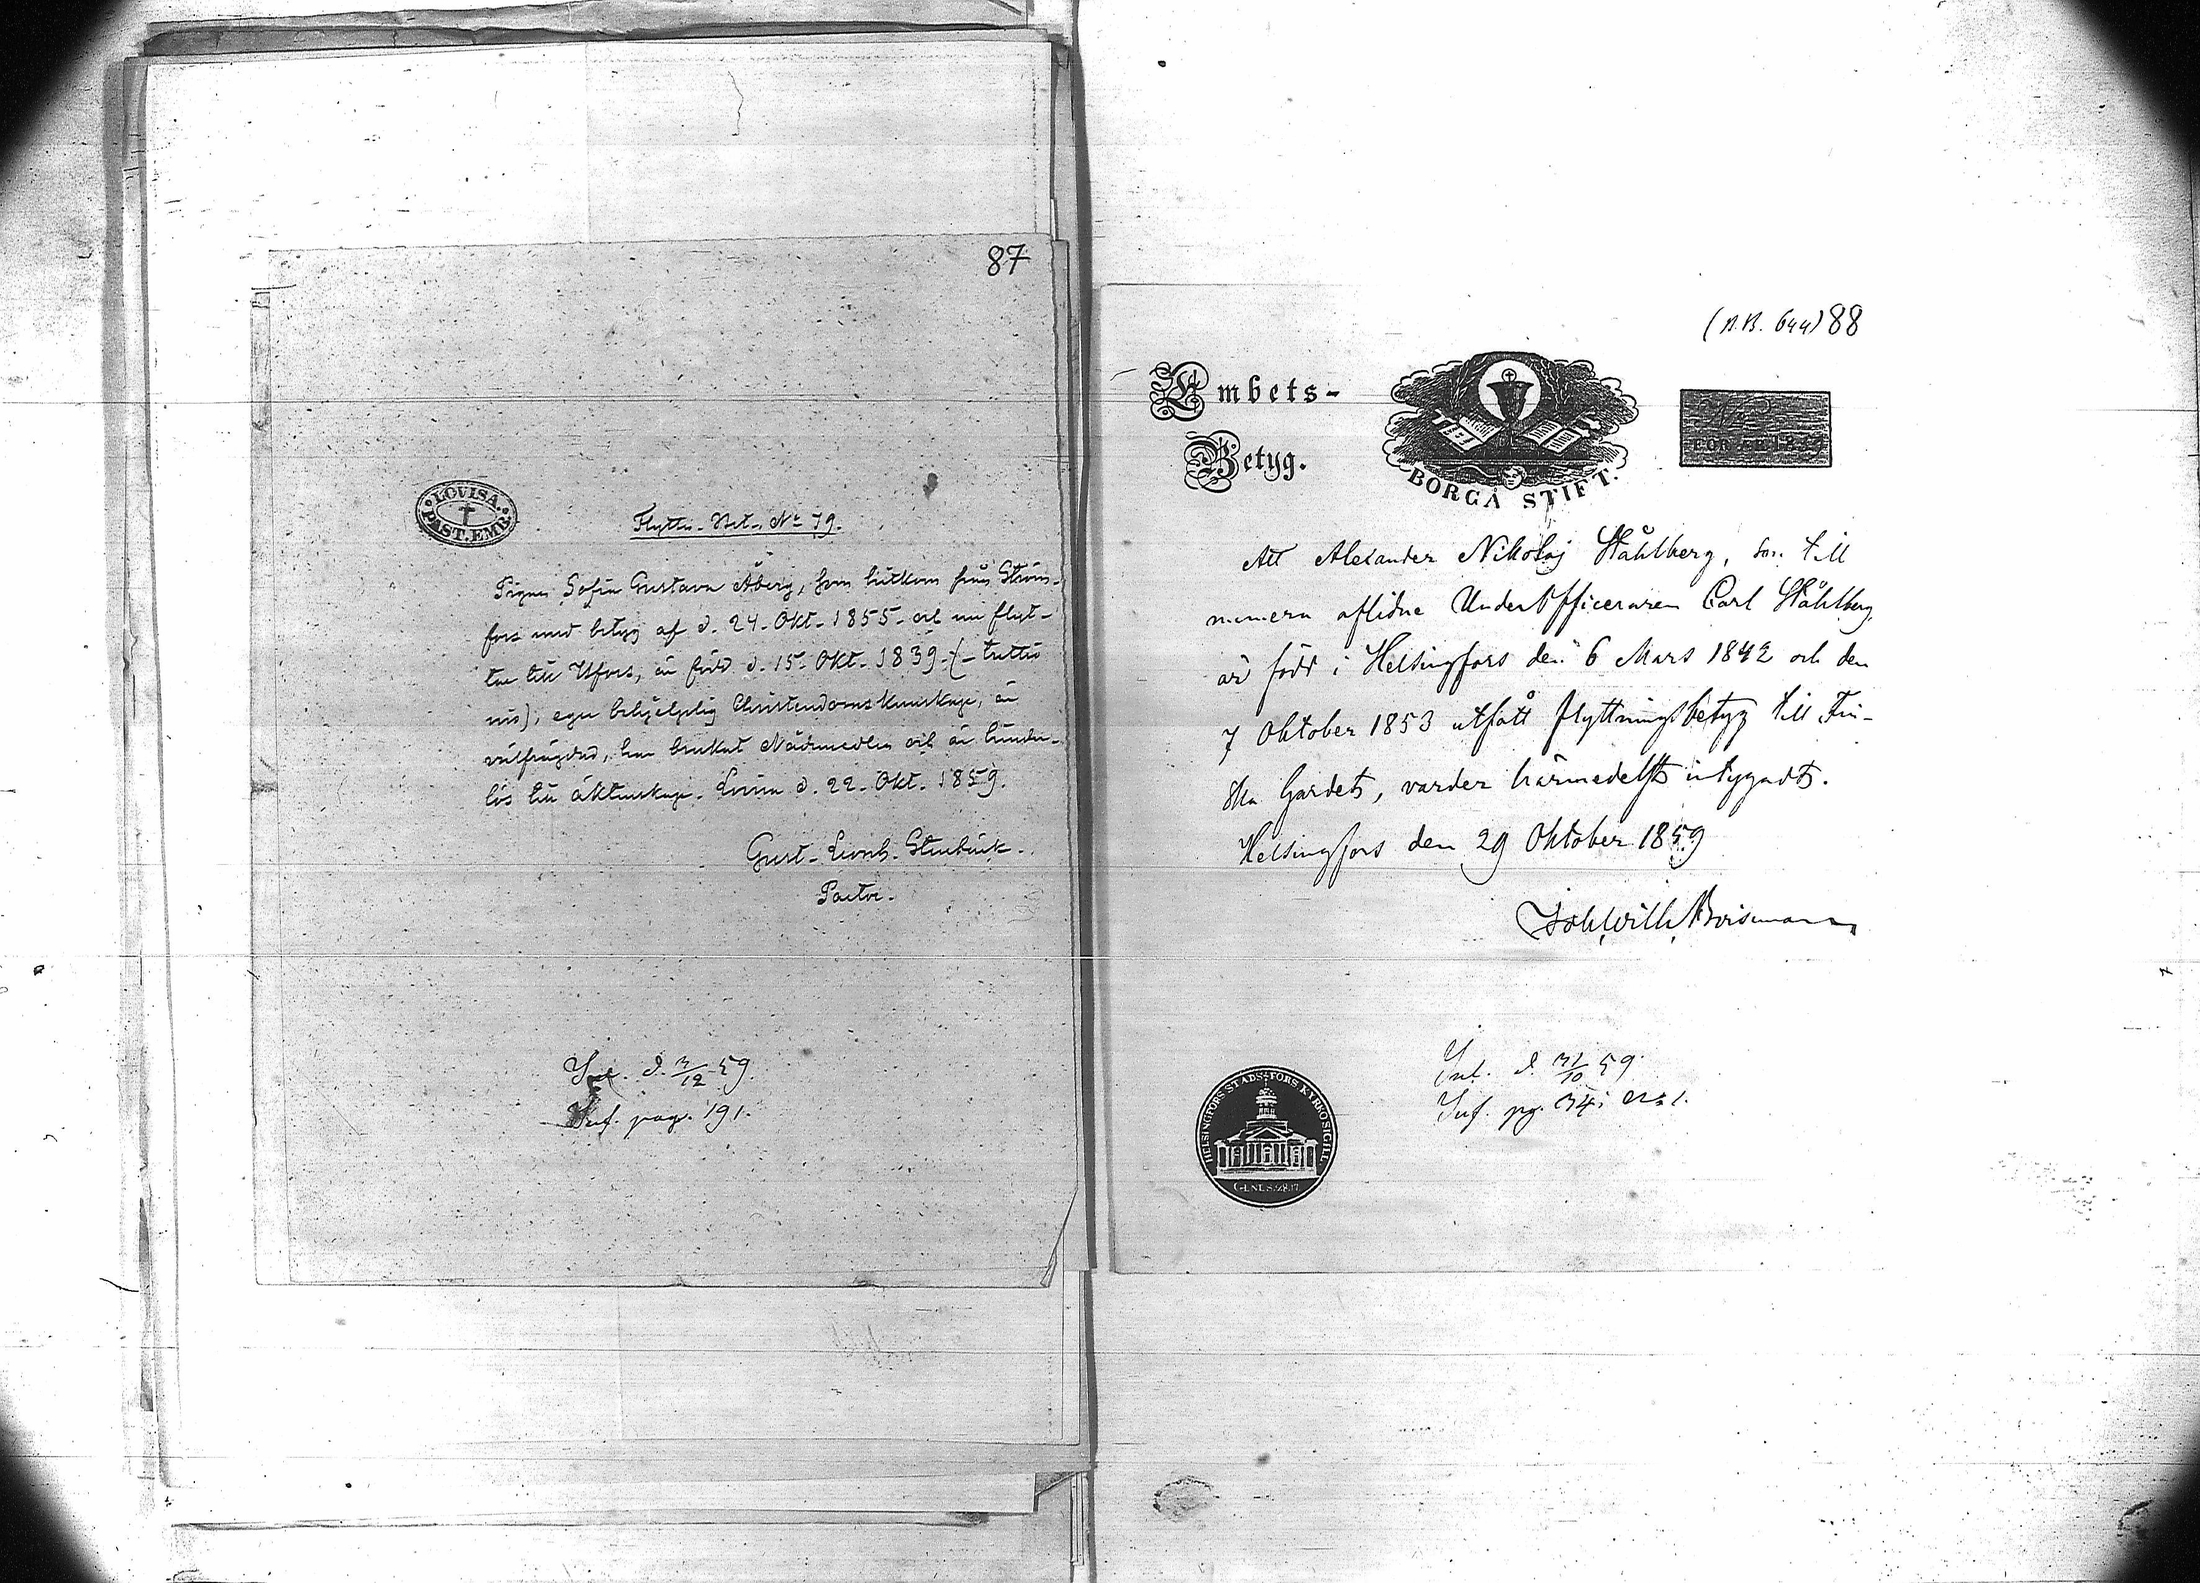 87
LOVISA.
PAST. EMB.
Flyttn. Bet. No 79.
Pigan Sofia Gustava Åberg, som hitkom från Ström-
fors med betyg af d. 24. Okt. 1855. och nu flyt-
tar till Hfors, är född d. 15. Okt. 1839. (- trettio
nio), eger behjelplig Christendomskunskap, är
välfrägdad, har brukat Nådmedlen och är hinder-
lös till äktenskap. Lovisa d. 22. Okt. 1859.
Gust. Stenbäck.
Pastor.
Inl. d. 3/12 59.
Inf. pag. 191.
(N.B. 644) 88
Embets-
Betyg.
BORGÅ STIFT.
Att Alexander Nikolaj Ståhlberg, son till
numera aflidne UnderOfficeraren Carl Ståhlberg,
är född i Helsingfors den 6 Mars 1842 och den
7 Oktober 1853 utfått flyttningsbetyg till Fin-
ska Gardet, varder härmedelst intygadt.
Helsingfors den 29 Oktober 1859
Joh. Wilh. Roismann
Inl. d. 31/10 59.
Inf. pg. 34;
HELSINGFORS STADS-FORS. KYRKOSIGILL.
GENES. 28.17.